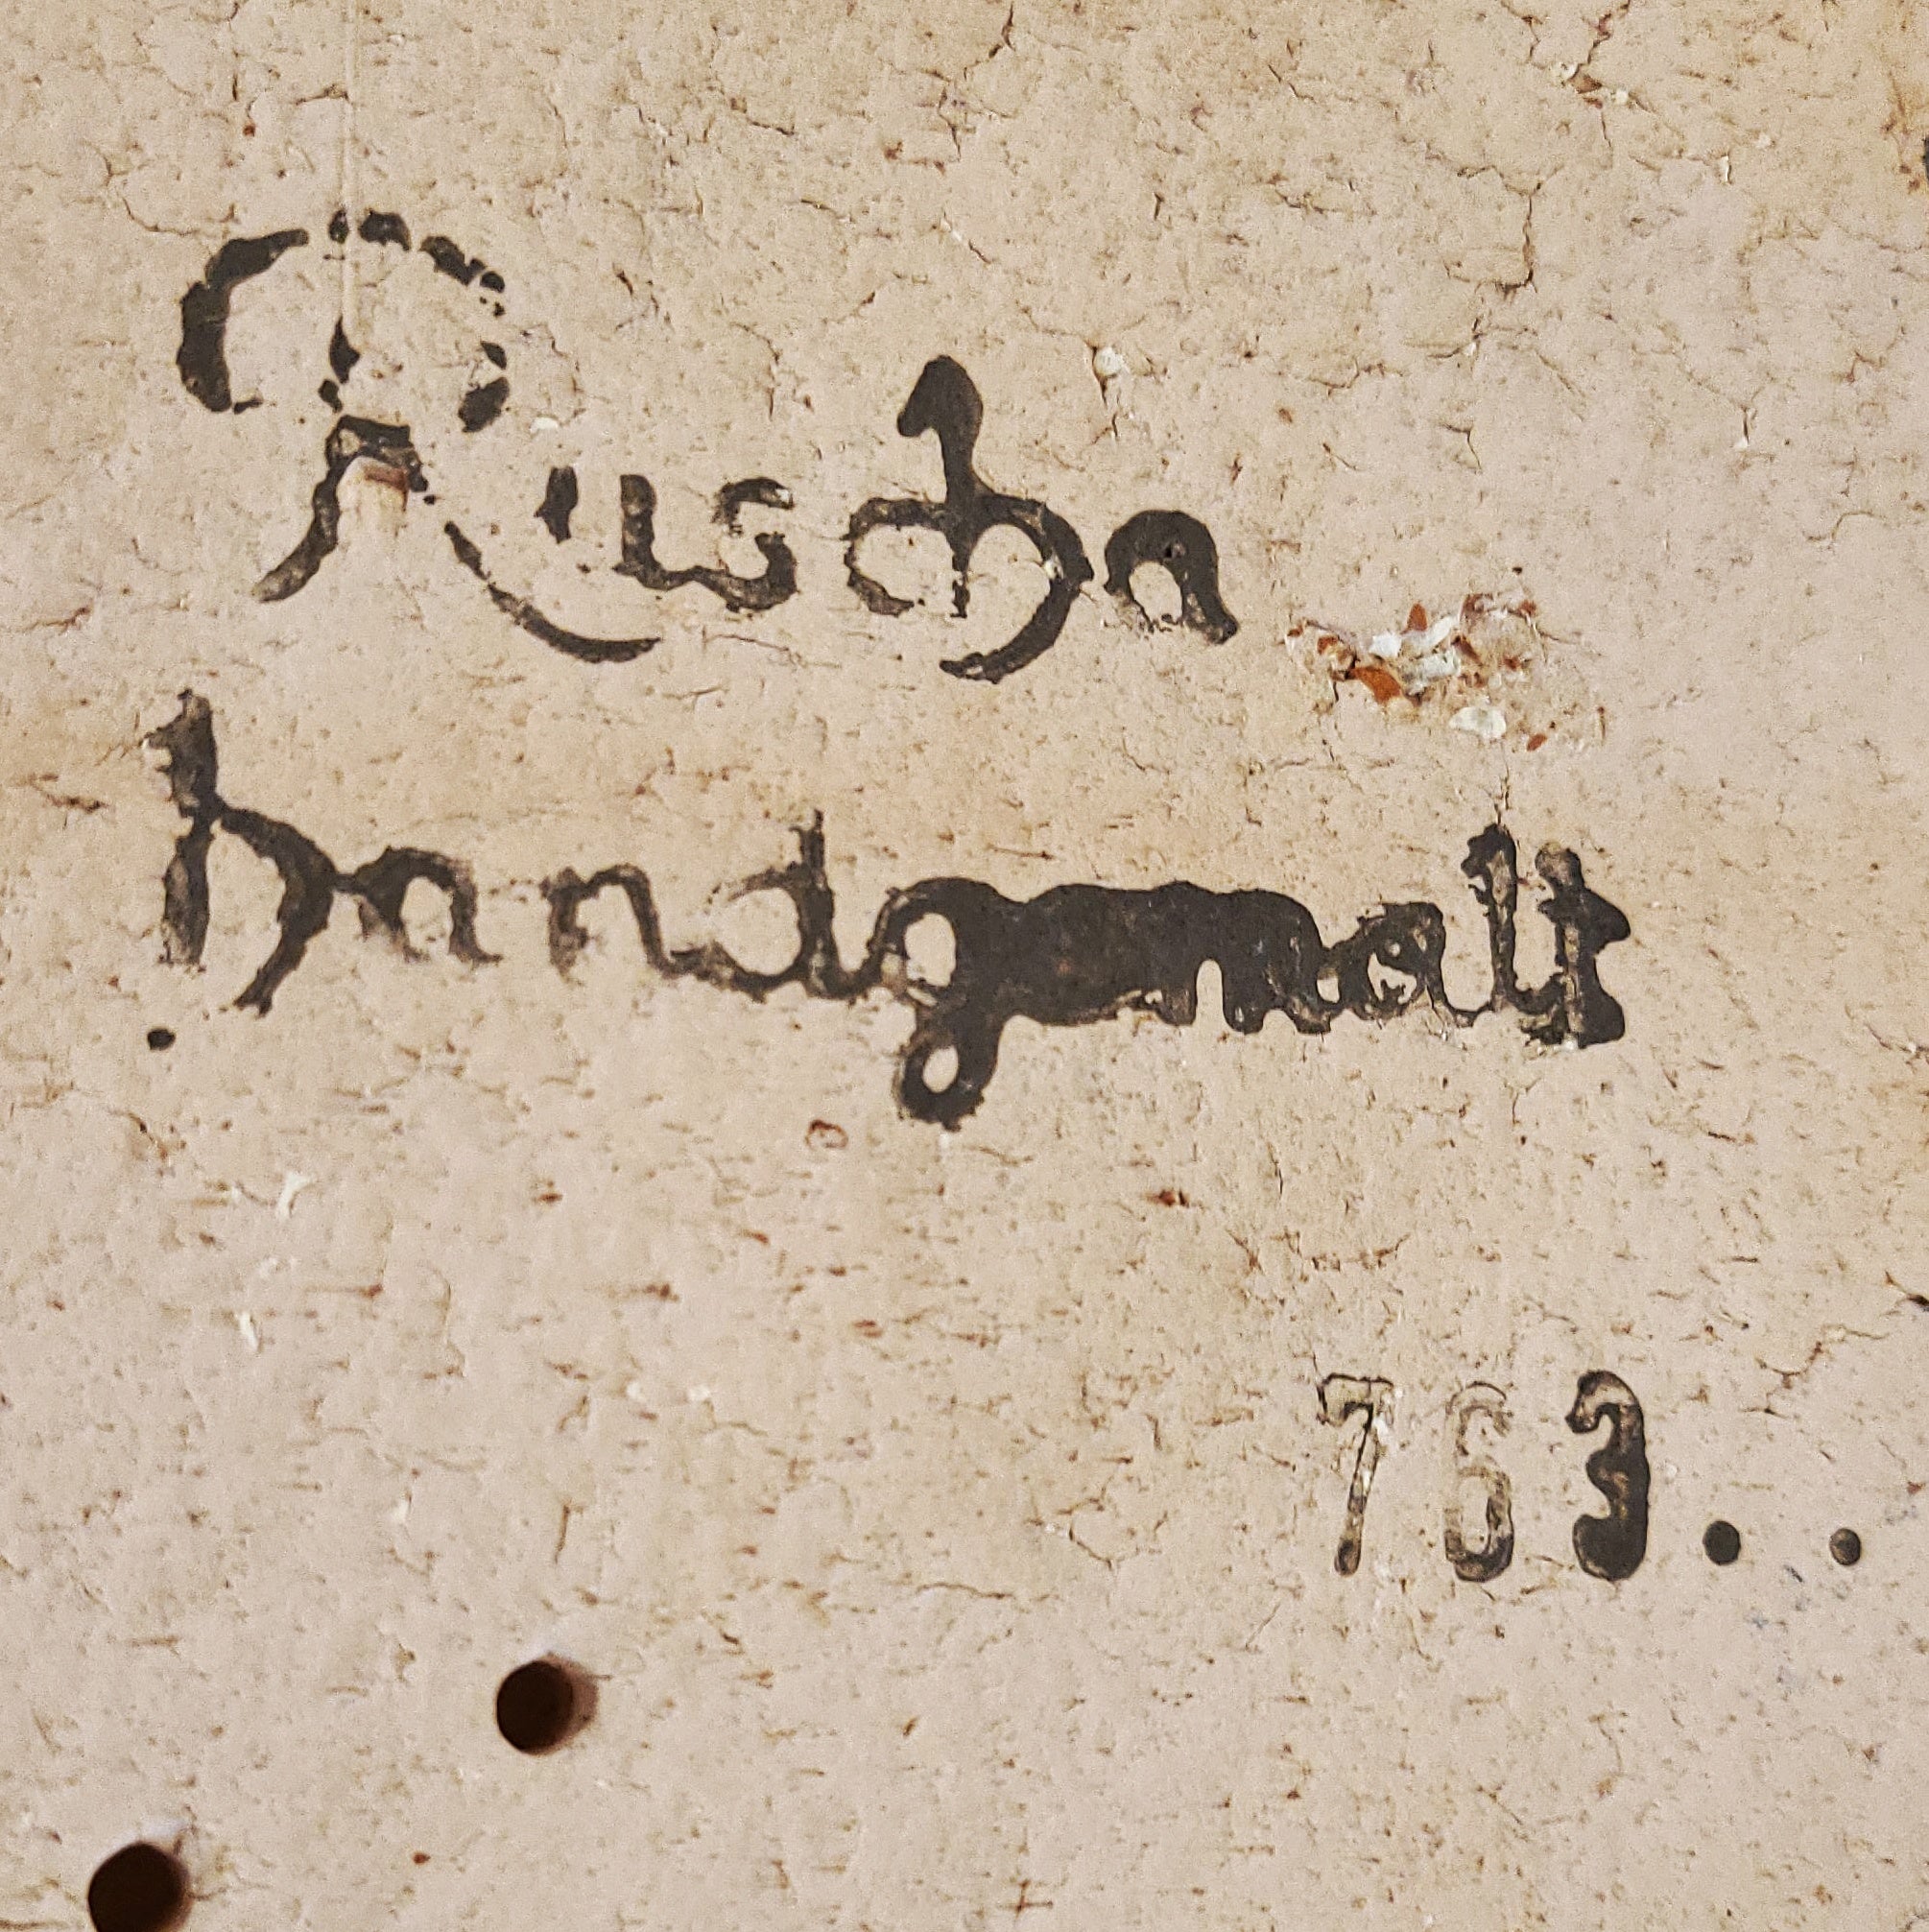 Ruscha
handgemalt
763..